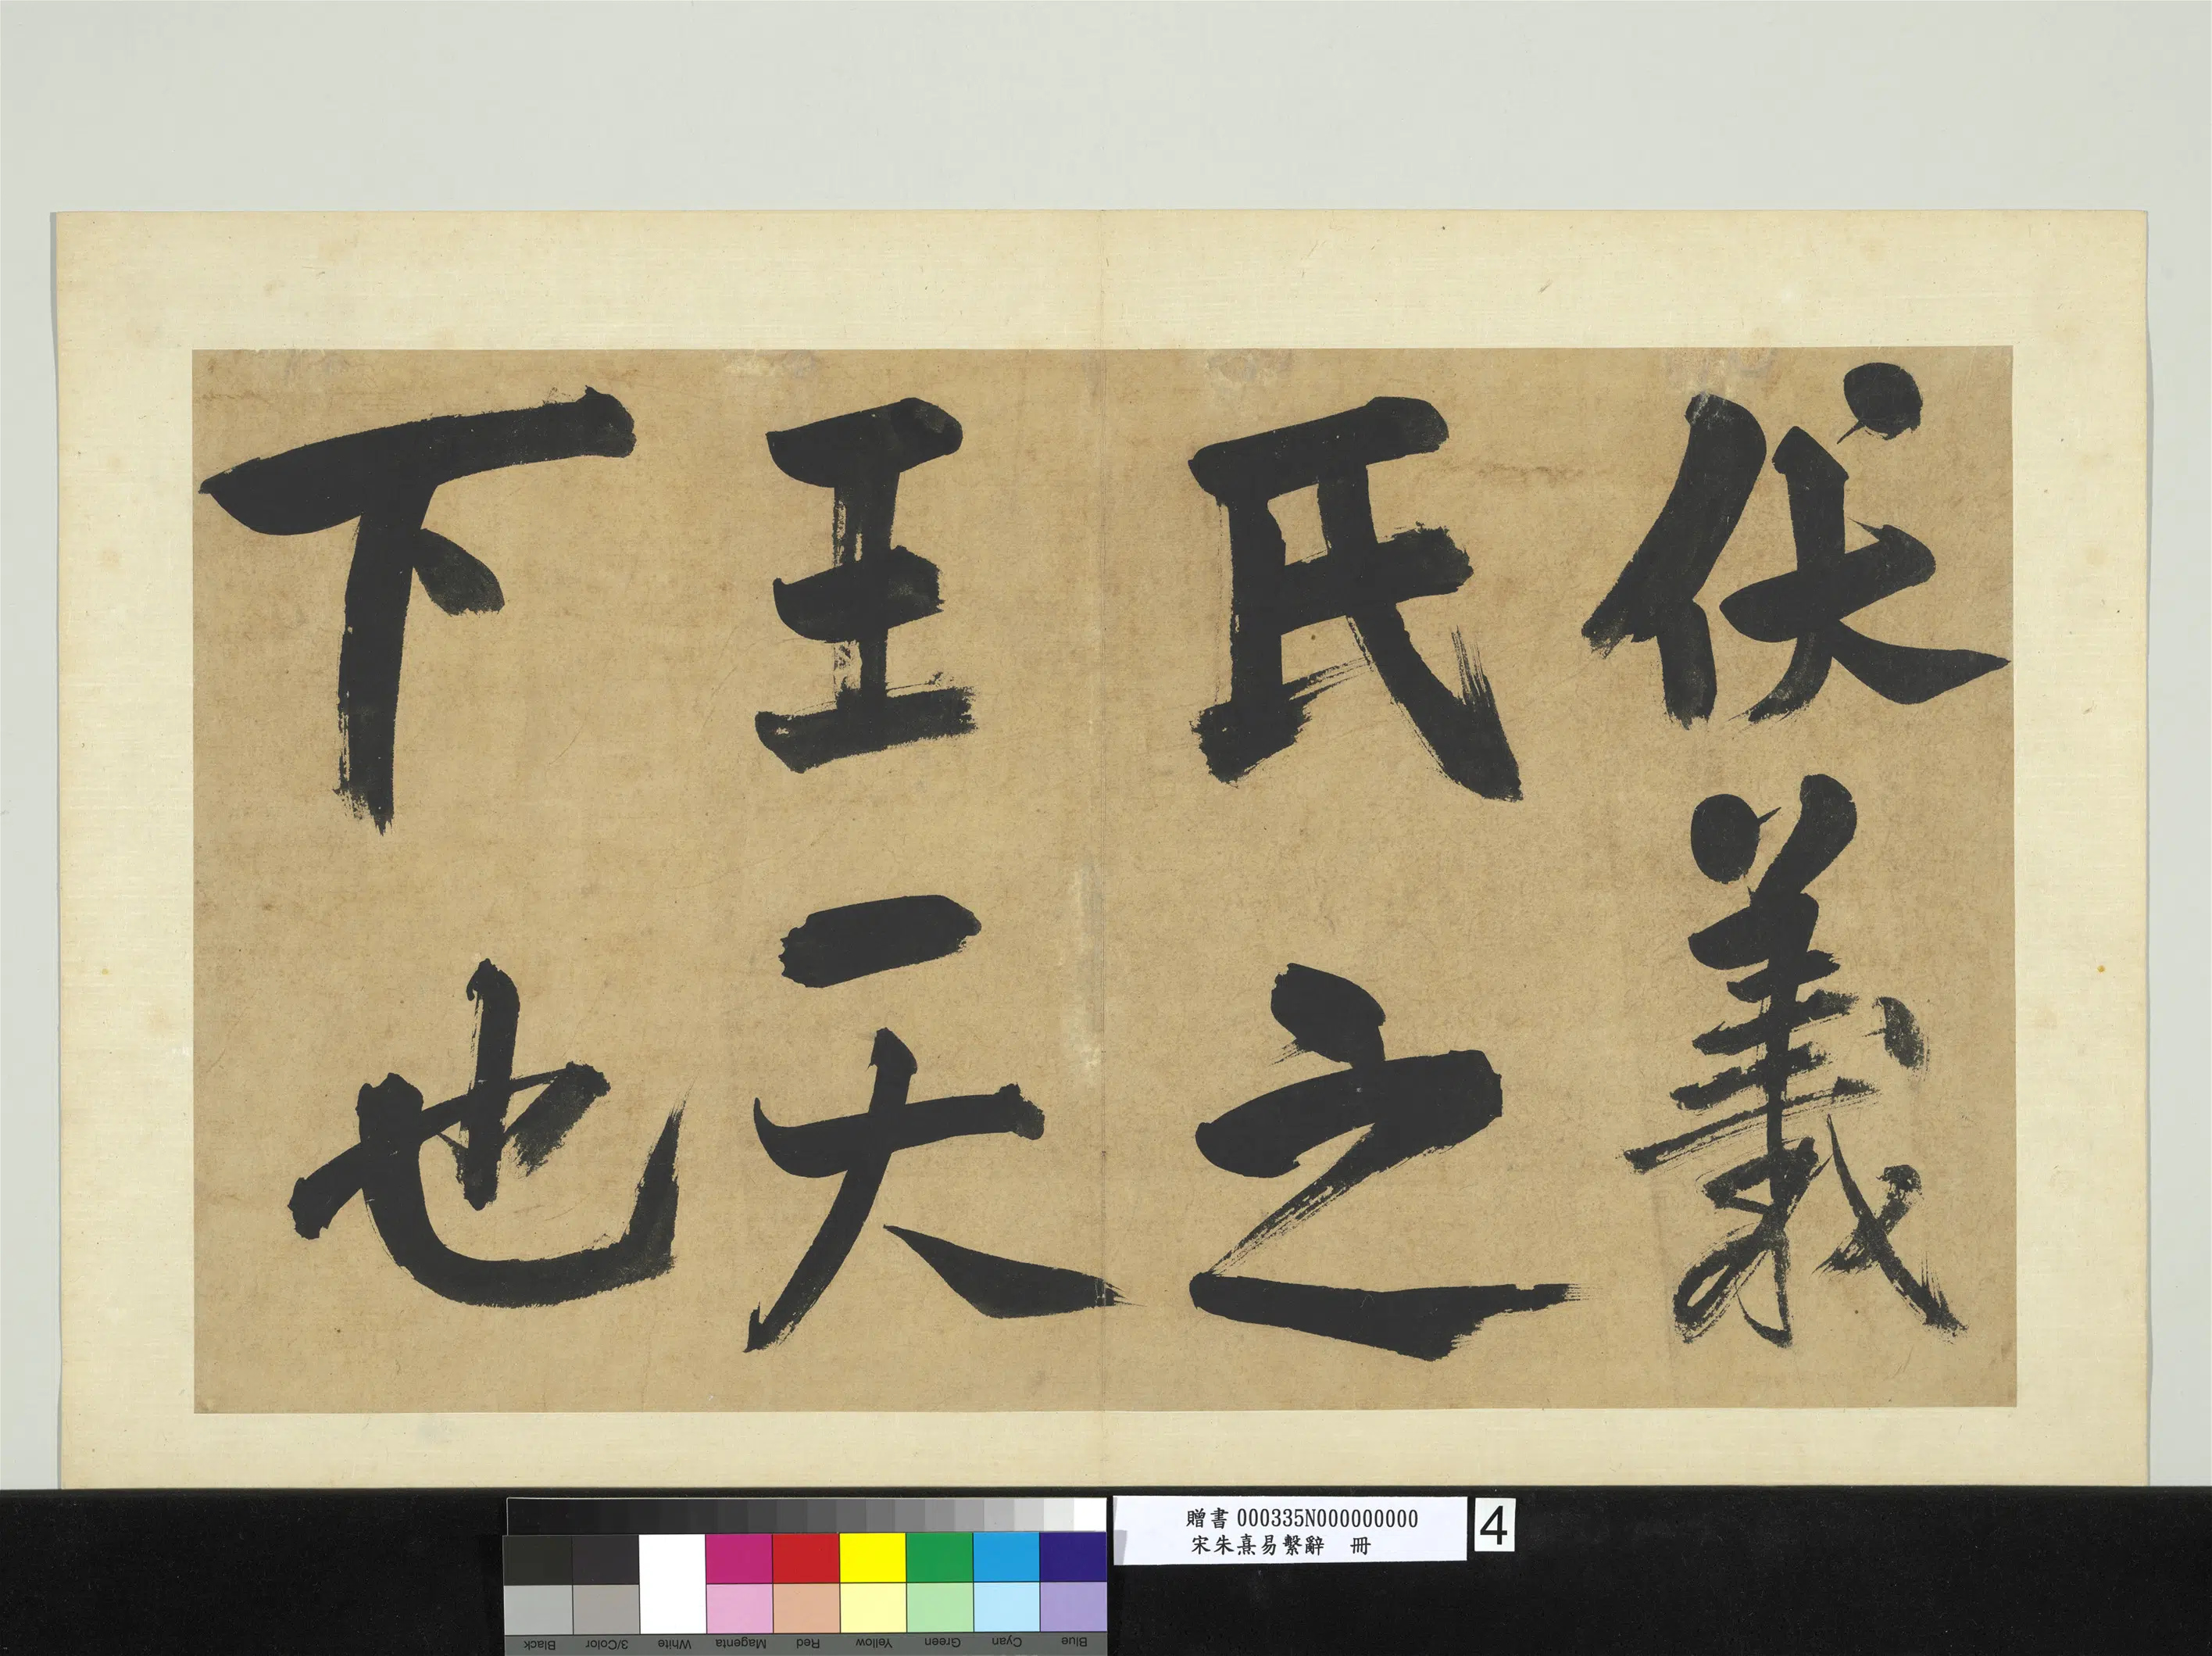 伏羲
氏之
王天
下也
贈書 000335N000000000
宋朱熹易繫辭 冊
4
Black
3/Color
White
Magenta
Red
Yellow
Green
Cyan
Blue